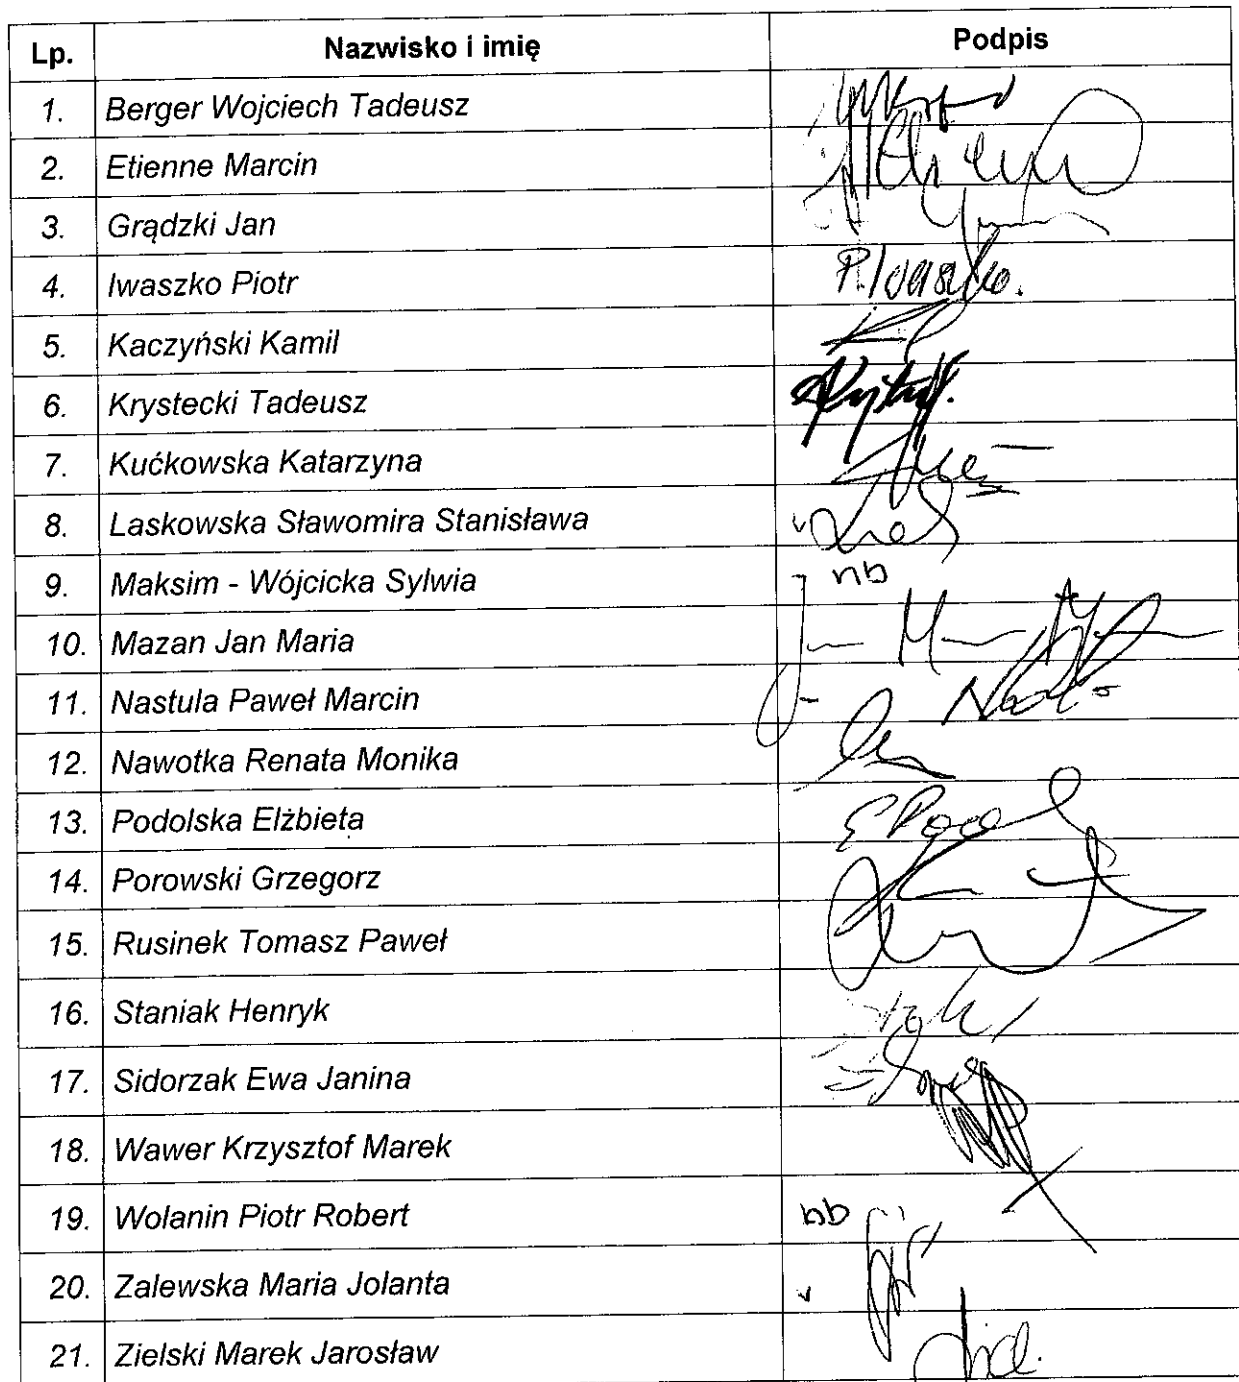 Lp. Nazwisko i imię Podpis
1. Berger Wojciech Tadeusz
2. Etienne Marcin
3. Grądzki Jan
4. Iwaszko Piotr P. Iwaszko.
5. Kaczyński Kamil
6. Krystecki Tadeusz
7. Kućkowska Katarzyna
8. Laskowska Sławomira Stanisława
9. Maksim - Wójcicka Sylwia nb
10. Mazan Jan Maria
11. Nastula Paweł Marcin
12. Nawotka Renata Monika
13. Podolska Elżbieta
14. Porowski Grzegorz
15. Rusinek Tomasz Paweł
16. Staniak Henryk
17. Sidorzak Ewa Janina
18. Wawer Krzysztof Marek
19. Wolanin Piotr Robert nb
20. Zalewska Maria Jolanta
21. Zielski Marek Jarosław